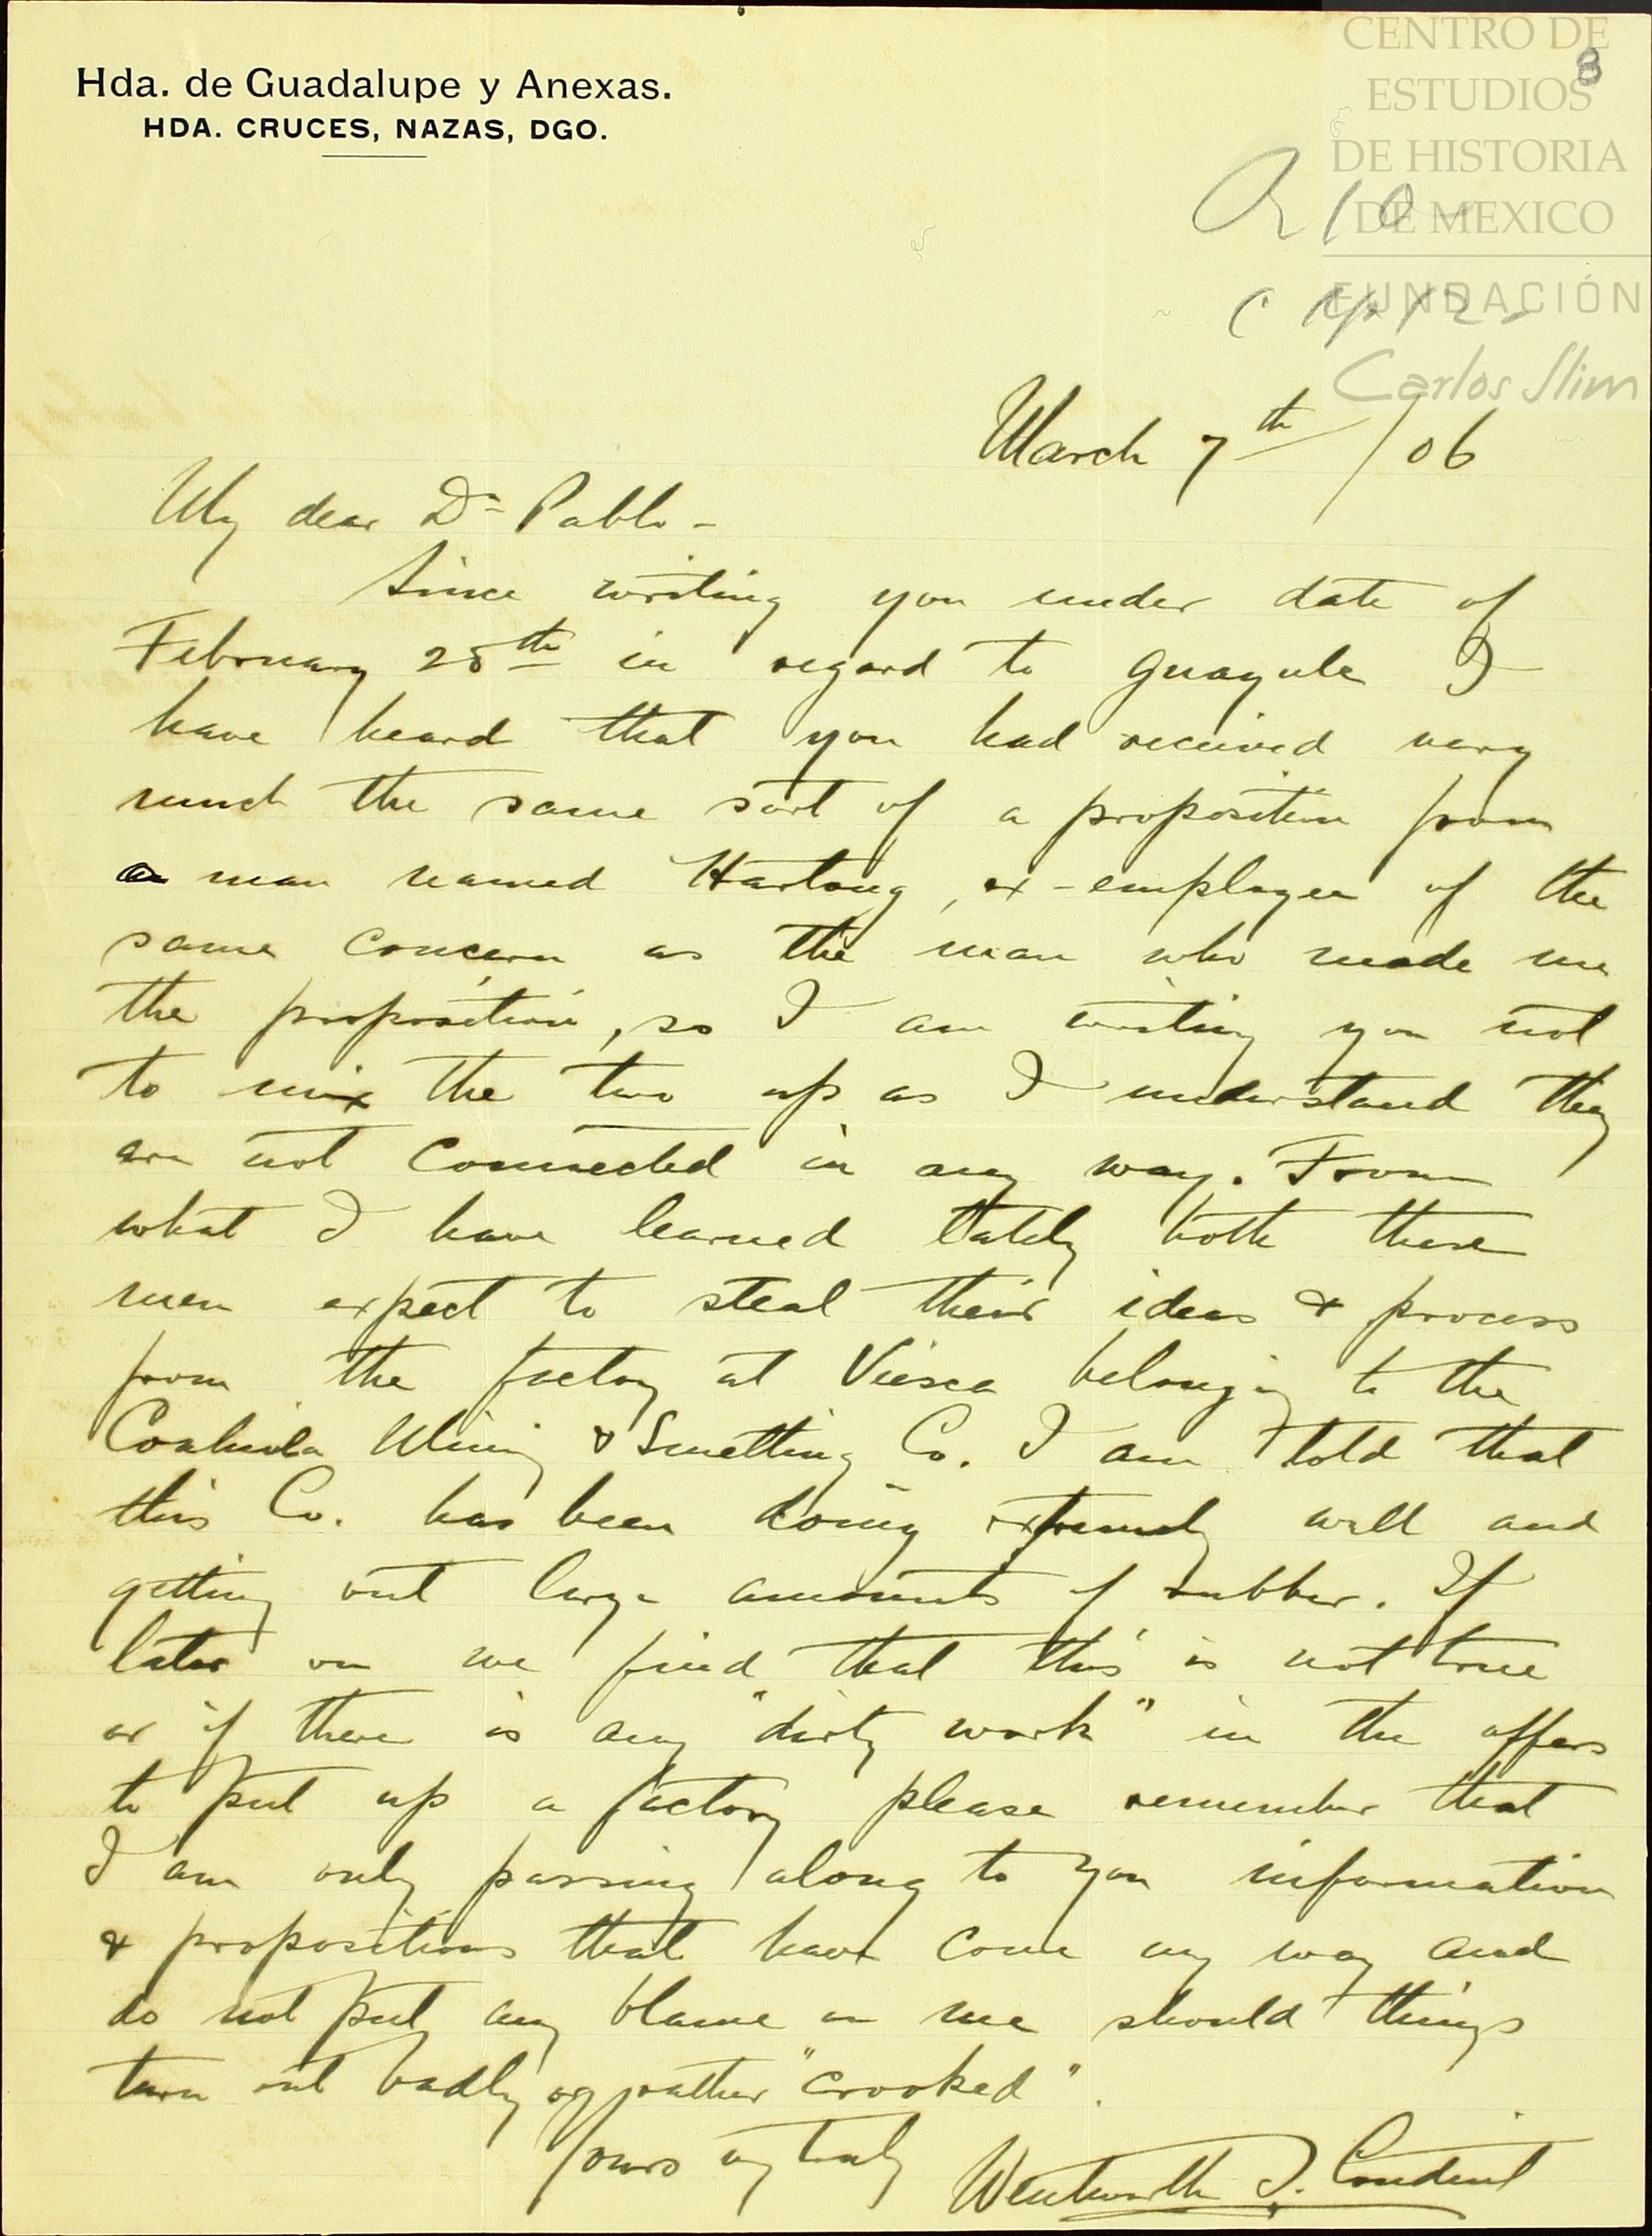 Hda. de Guadalupe y Anexas.
HDA. CRUCES, NAZAS, DGO.
CENTRO DE
ESTUDIOS
DE HISTORIA
DE MEXICO
FUNDACIÓN
Carlos Slim
8
March 7th /06
My dear Dn Pablo -
Since writing you under date of
February 28th in regard to guayule I
have heard that you had received very
much the same sort of a proposition from
a man named Hartong, ex-employee of the
same concern as the man who made me
the proposition, so I am writing you not
to mix the two up as I understand they
are not connected in any way. From
what I have learned lately both these
men expect to steal their ideas & process
from the factory at Viesca belonging to the
Coahuila Mining & Smelting Co. I am told that
this Co. has been doing extremely well and
getting out large amounts of rubber. If
later on we find that this is not true
or if there is any "dirty work" in the offers
to put up a factory please remember that
I am only passing along to you information
& propositions that have come my way and
do not put any blame on me should things
turn out badly or rather "crooked".
Yours vy truly Wentworth